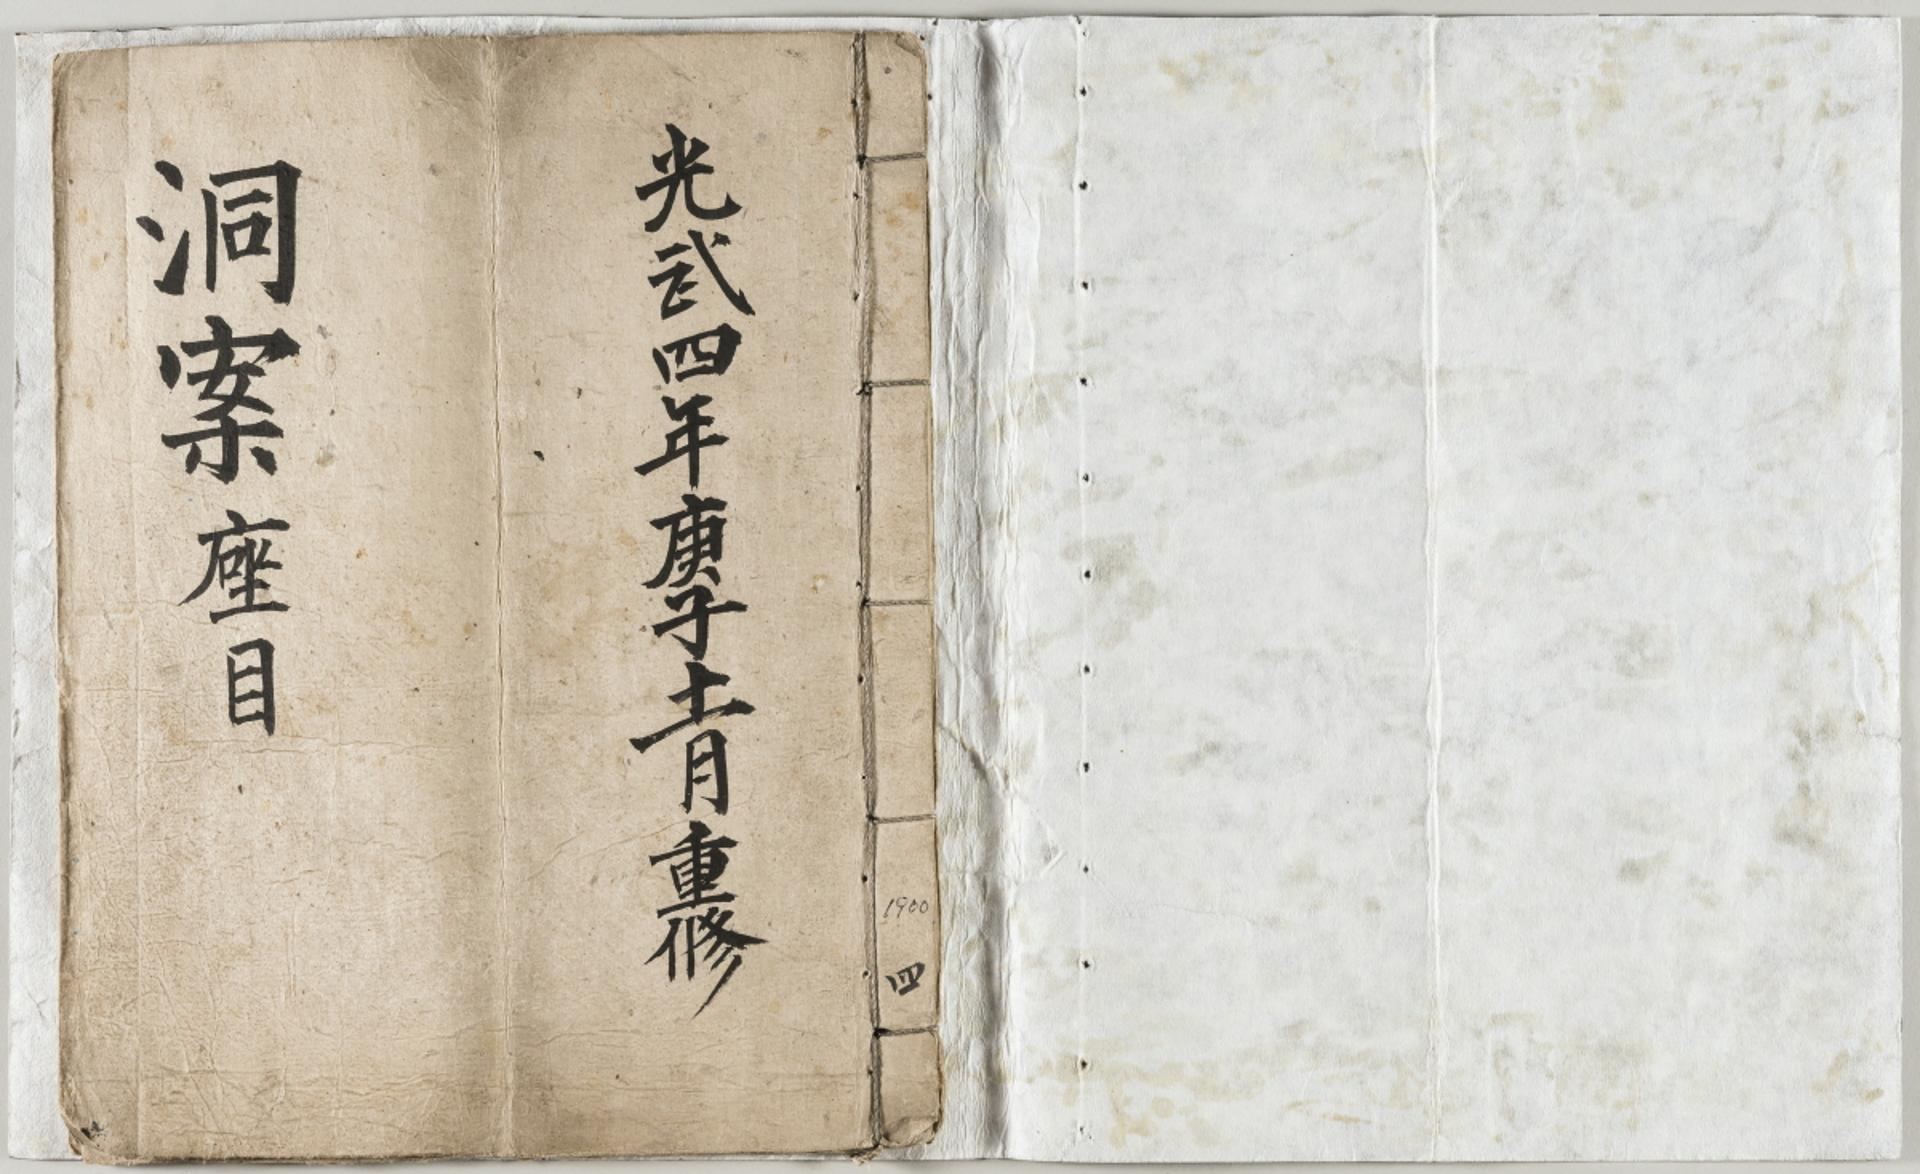 1900
四
光武四年庚子十一月重修
洞案座目